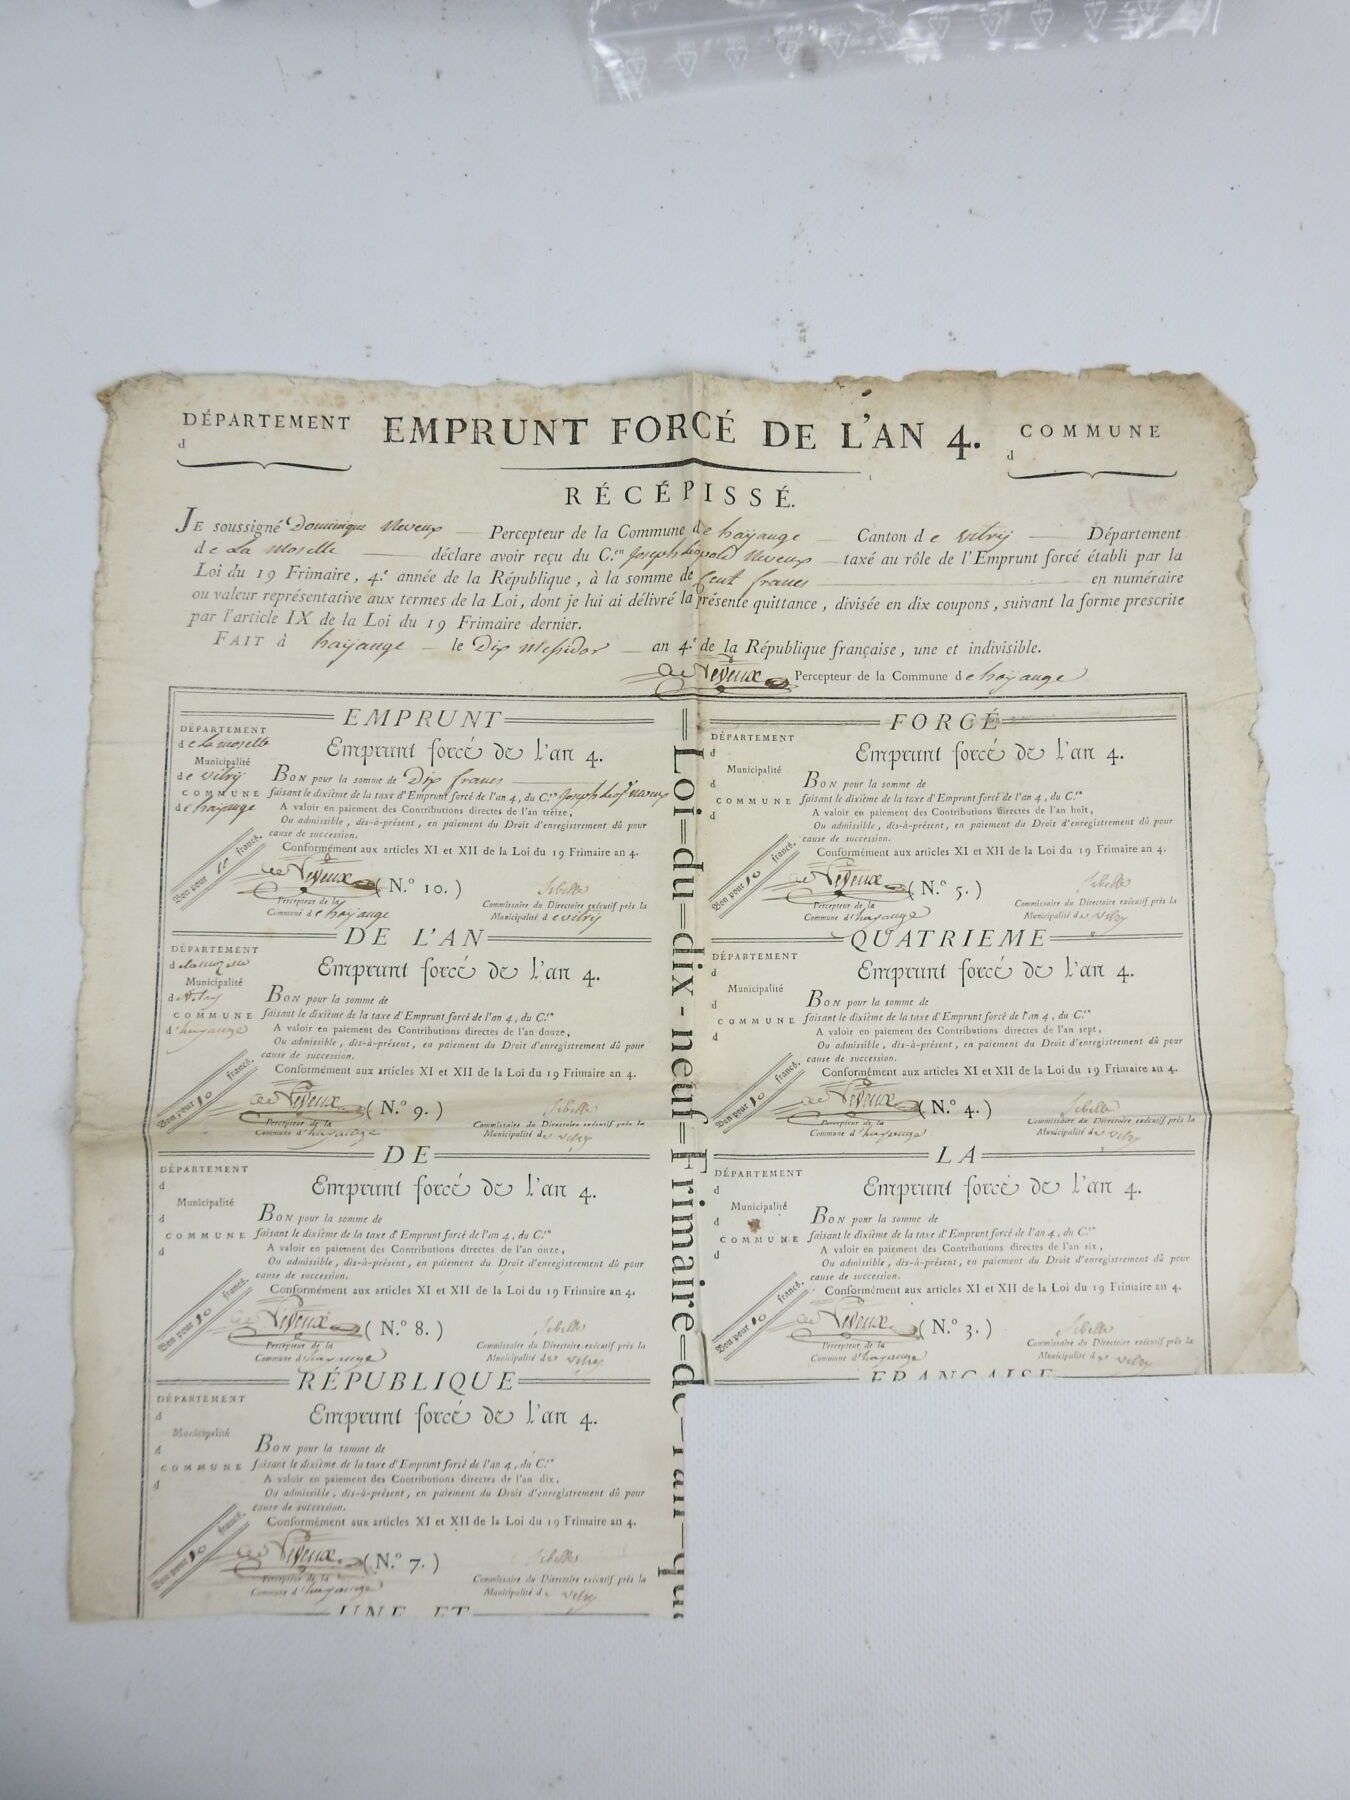 DÉPARTEMENT
d
EMPRUNT FORCÉ DE L'AN 4.
COMMUNE
d
RÉCÉPISSÉ.
JE soussigné Dominique Neveux Percepteur de la Commune de hayange Canton de Vitry Département
de La Moselle déclare avoir reçu du C.en Joseph Léopold Neveux taxé au rôle de l'Emprunt forcé établi par la
Loi du 19 Frimaire, 4.e année de la République, à la somme de Cent francs en numéraire
ou valeur représentative aux termes de la Loi, dont je lui ai délivré la présente quittance, divisée en dix coupons, suivant la forme prescrite
par l'article IX de la Loi du 19 Frimaire dernier.
FAIT à hayange le Dix Messidor an 4.e de la République française, une et indivisible.
Neveux Percepteur de la Commune de hayange
EMPRUNT
DÉPARTEMENT
de La moselle
Municipalité
de Vitry
COMMUNE
de hayange
Emprunt forcé de l'an 4.
BON pour la somme de Dix francs
faisant le dixième de la taxe d'Emprunt forcé de l'an 4, du C.en Joseph Leop Neveux
A valoir en paiement des Contributions directes de l'an treize,
Ou admissible, dès-à-présent, en paiement du Droit d'enregistrement dû pour
cause de succession.
Conformément aux articles XI et XII de la Loi du 19 Frimaire an 4.
Bon pour 10 francs.
Neveux (N.o 10.)
Percepteur de la
Commune de hayange
Sibille
Commissaire du Directoire exécutif près la
Municipalité de Vitry
FORCÉ
DÉPARTEMENT
d
Municipalité
d
COMMUNE
d
Emprunt forcé de l'an 4.
BON pour la somme de
faisant le dixième de la taxe d'Emprunt forcé de l'an 4, du C.en
A valoir en paiement des Contributions directes de l'an huit,
Ou admissible, dès-à-présent, en paiement du Droit d'enregistrement dû pour
cause de succession.
Conformément aux articles XI et XII de la Loi du 19 Frimaire an 4.
Bon pour 10 francs.
Neveux (N.o 5.)
Percepteur de la
Commune d'hayange
Sibille
Commissaire du Directoire exécutif près la
Municipalité de Vitry
DE L'AN
DÉPARTEMENT
de la mozelle
Municipalité
de Vitry
COMMUNE
d'hayange
Emprunt forcé de l'an 4.
BON pour la somme de
faisant le dixième de la taxe d'Emprunt forcé de l'an 4, du C.en
A valoir en paiement des Contributions directes de l'an douze,
Ou admissible, dès-à-présent, en paiement du Droit d'enregistrement dû pour
cause de succession.
Conformément aux articles XI et XII de la Loi du 19 Frimaire an 4.
Bon pour 10 francs.
Neveux (N.o 9.)
Percepteur de la
Commune d'hayange
Sibille
Commissaire du Directoire exécutif près la
Municipalité de Vitry
QUATRIEME
DÉPARTEMENT
d
Municipalité
d
COMMUNE
d
Emprunt forcé de l'an 4.
BON pour la somme de
faisant le dixième de la taxe d'Emprunt forcé de l'an 4, du C.en
A valoir en paiement des Contributions directes de l'an sept,
Ou admissible, dès-à-présent, en paiement du Droit d'enregistrement dû pour
cause de succession.
Conformément aux articles XI et XII de la Loi du 19 Frimaire an 4.
Bon pour 10 francs.
Neveux (N.o 4.)
Percepteur de la
Commune d'hayange
Sibille
Commissaire du Directoire exécutif près la
Municipalité de Vitry
DE
DÉPARTEMENT
d
Municipalité
d
COMMUNE
d
Emprunt forcé de l'an 4.
BON pour la somme de
faisant le dixième de la taxe d'Emprunt forcé de l'an 4, du C.en
A valoir en paiement des Contributions directes de l'an onze,
Ou admissible, dès-à-présent, en paiement du Droit d'enregistrement dû pour
cause de succession.
Conformément aux articles XI et XII de la Loi du 19 Frimaire an 4.
Bon pour 10 francs.
Neveux (N.o 8.)
Percepteur de la
Commune d'hayange
Sibille
Commissaire du Directoire exécutif près la
Municipalité de Vitry
LA
DÉPARTEMENT
d
Municipalité
d
COMMUNE
d
Emprunt forcé de l'an 4.
BON pour la somme de
faisant le dixième de la taxe d'Emprunt forcé de l'an 4, du C.en
A valoir en paiement des Contributions directes de l'an six,
Ou admissible, dès-à-présent, en paiement du Droit d'enregistrement dû pour
cause de succession.
Conformément aux articles XI et XII de la Loi du 19 Frimaire an 4.
Bon pour 10 francs.
Neveux (N.o 3.)
Percepteur de la
Commune d'hayange
Sibille
Commissaire du Directoire exécutif près la
Municipalité de Vitry
FRANÇAISE
RÉPUBLIQUE
DÉPARTEMENT
d
Municipalité
d
COMMUNE
d
Emprunt forcé de l'an 4.
BON pour la somme de
faisant le dixième de la taxe d'Emprunt forcé de l'an 4, du C.en
A valoir en paiement des Contributions directes de l'an dix,
Ou admissible, dès-à-présent, en paiement du Droit d'enregistrement dû pour
cause de succession.
Conformément aux articles XI et XII de la Loi du 19 Frimaire an 4.
Bon pour 10 francs.
Neveux (N.o 7.)
Percepteur de la
Commune d'hayange
Sibille
Commissaire du Directoire exécutif près la
Municipalité de Vitry
UNE ET
Loi=du=dix-neuf=Frimaire=de=l'an=qu